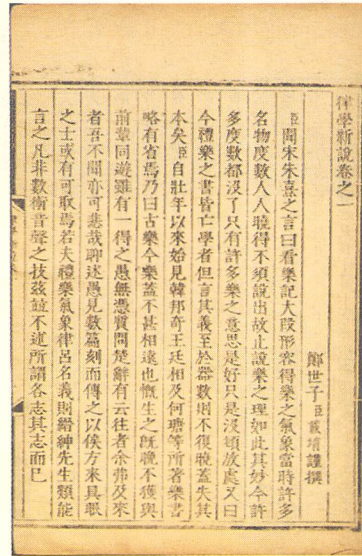 律學新說卷之一
鄭世子臣載堉謹撰
臣聞宋朱熹之言曰看樂記大段形容得樂之氣象當時許多
名物度數人人曉得不須說出故止說樂之理如此其妙今許
多度數都沒了只有許多樂之意思是好只是沒頓放處又曰
今禮樂之書皆亡學者但言其義至於器數則不復曉蓋失其
本矣臣自壯年以來始見韓邦奇王廷相及何瑭等所著樂書
略有省焉乃曰古樂今樂蓋不甚相遠也慨生之既晚不獲與
前輩同遊雖有一得之愚無憑質問楚辭有云往者余弗及來
者吾不聞亦可悲哉聊述愚見數篇刻而傳之以俟方來具眼
之士或有可取焉若夫禮樂氣象律呂名義則縉紳先生類能
言之凡非數術音聲之技茲並不述所謂各志其志而已